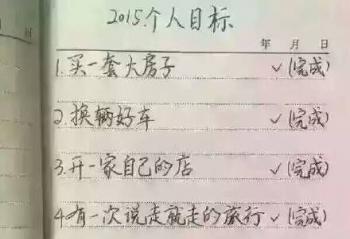 2015.个人目标
年 月 日
1.买一套大房子 ✓(完成)
2.换辆好车 ✓(完成)
3.开一家自己的店 ✓(完成)
4.有一次说走就走的旅行 ✓(完成)